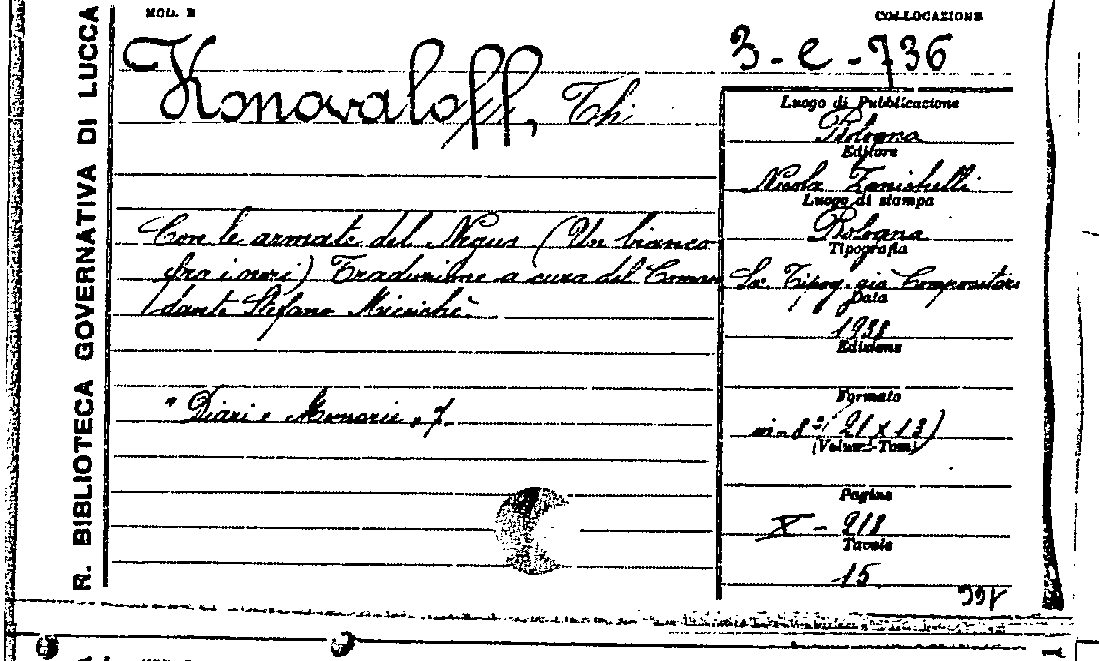 MOD. B
COLLOCAZIONE
R. BIBLIOTECA GOVERNATIVA DI LUCCA
3-C-736
Konovaloff, Th.
Con le armate del Negus (Un bianco
fra i neri) Traduzione a cura del Coman
dante Stefano Miccichè.
"Diari e Memorie", 7.
Luogo di Pubblicazione
Bologna
Editore
Nicola Zanichelli
Luogo di stampa
Bologna
Tipografia
Tipog. già Compositori
Data
1938
Edizione
Formato
in-8° (21x13)
(Volumi-Tomi)
Pagine
X-218
Tavole
15